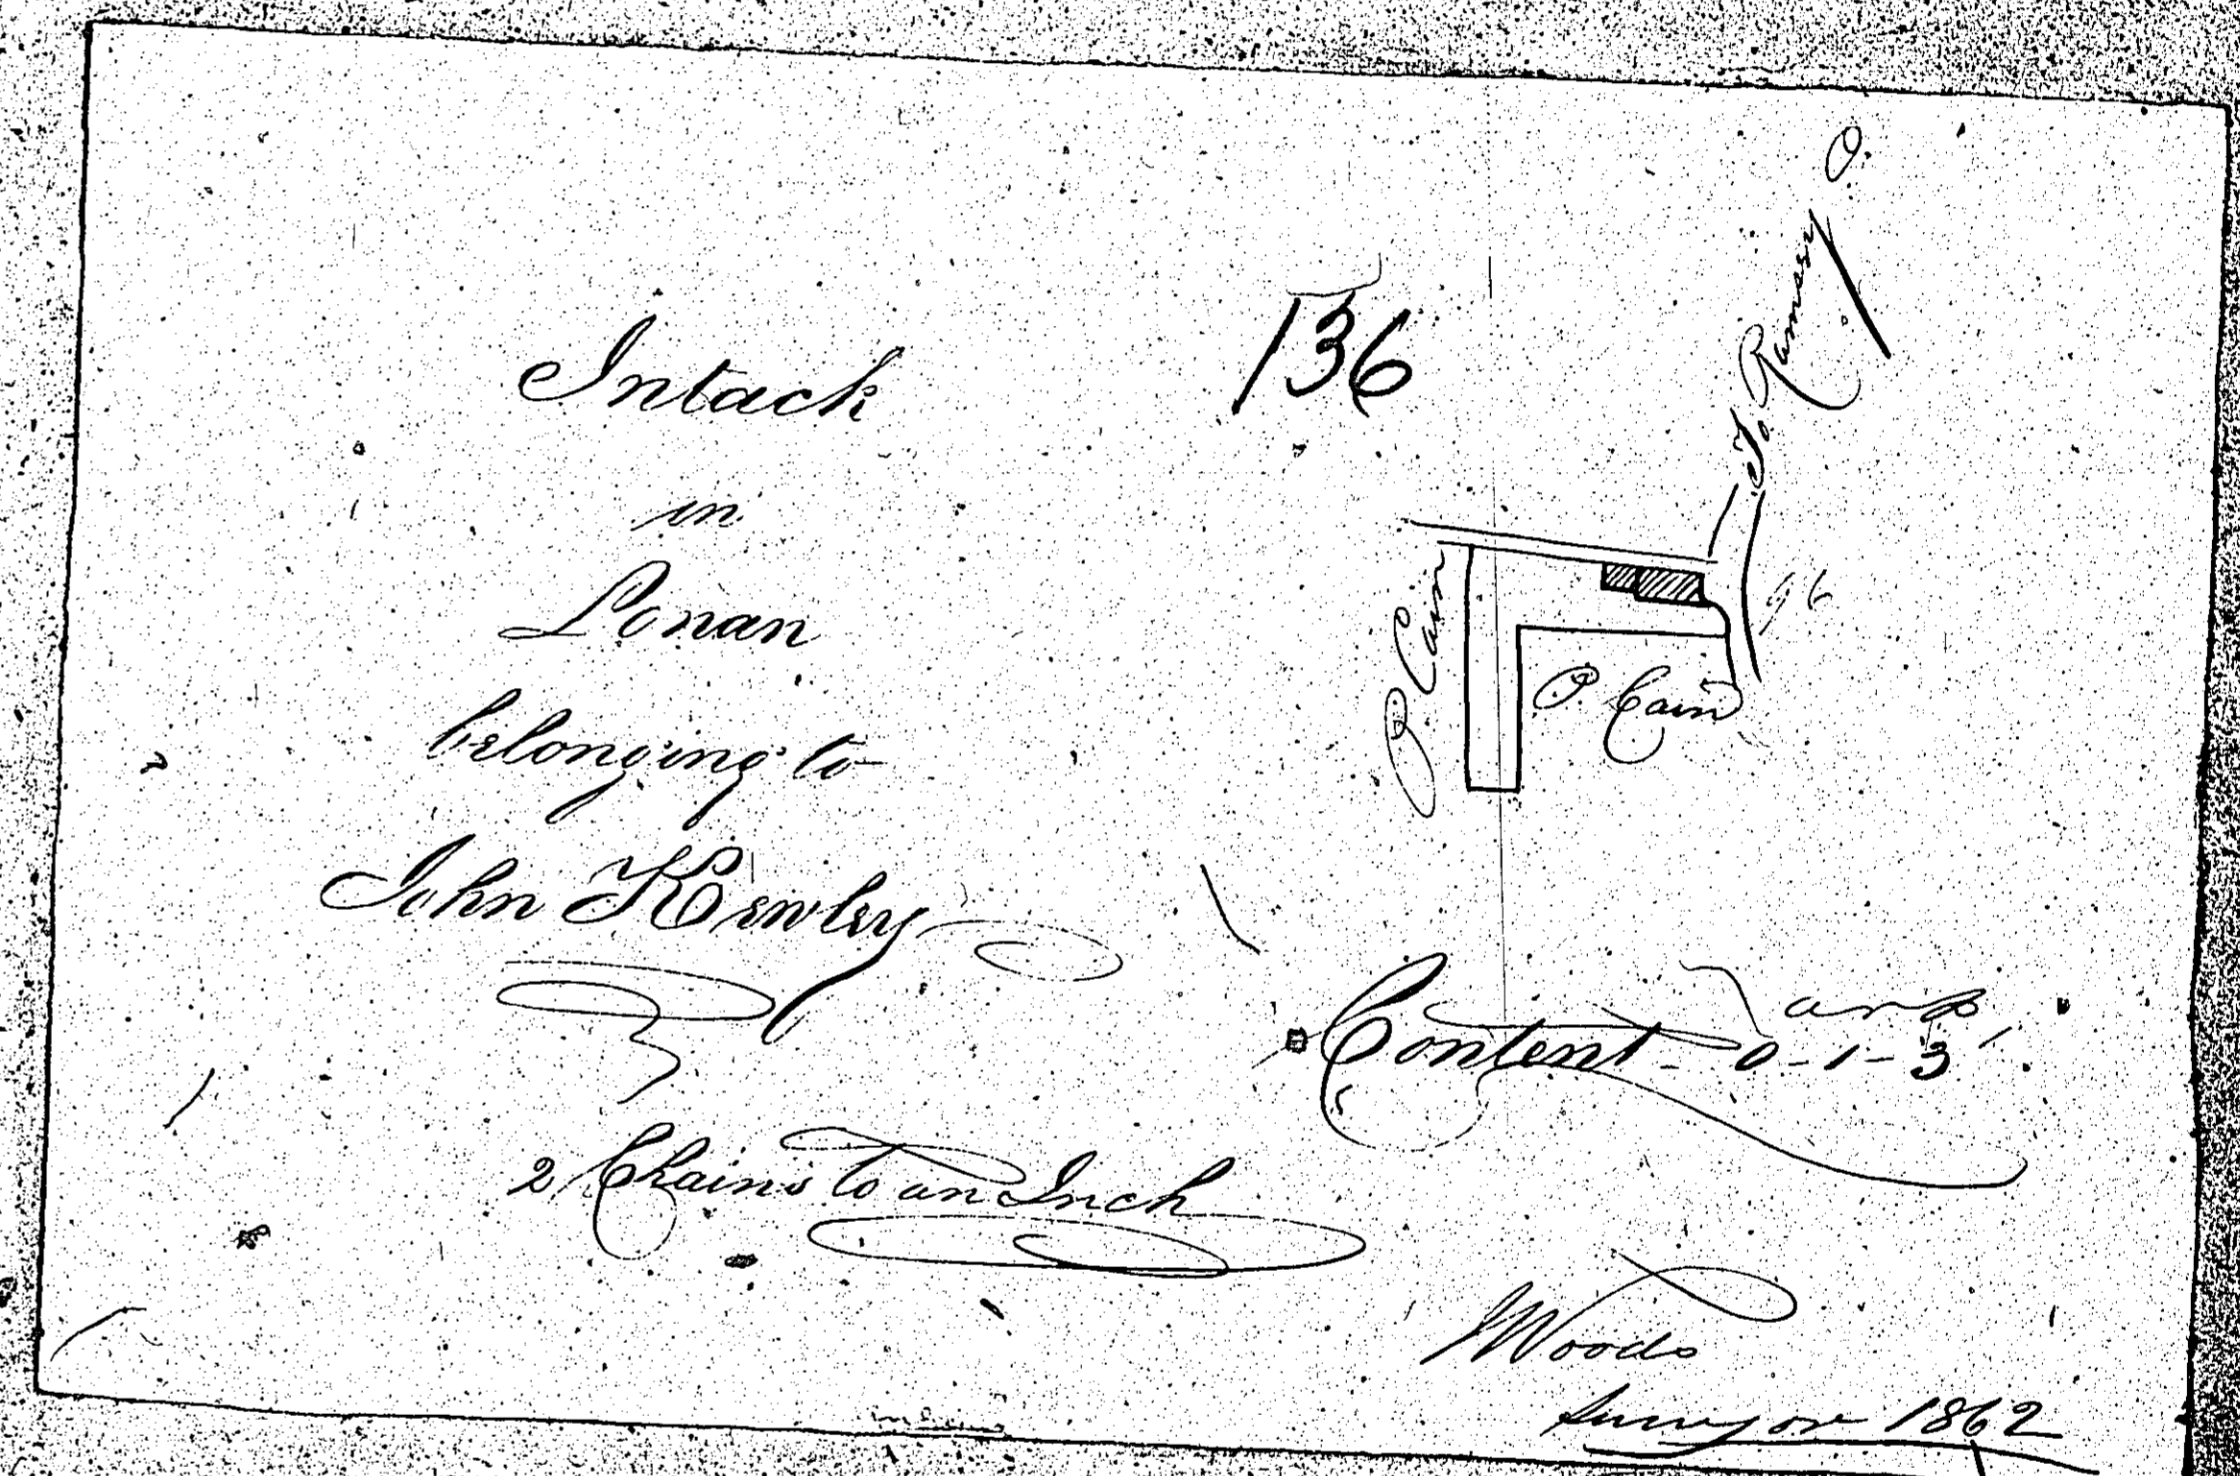 Intack
136
in
Lonan
belonging to
John Kewley
2 Chains to an Inch
To Ramsey
P. Cain
P. Cain
a r p
Content - 0-1-3
Woods
Surveyor 1862